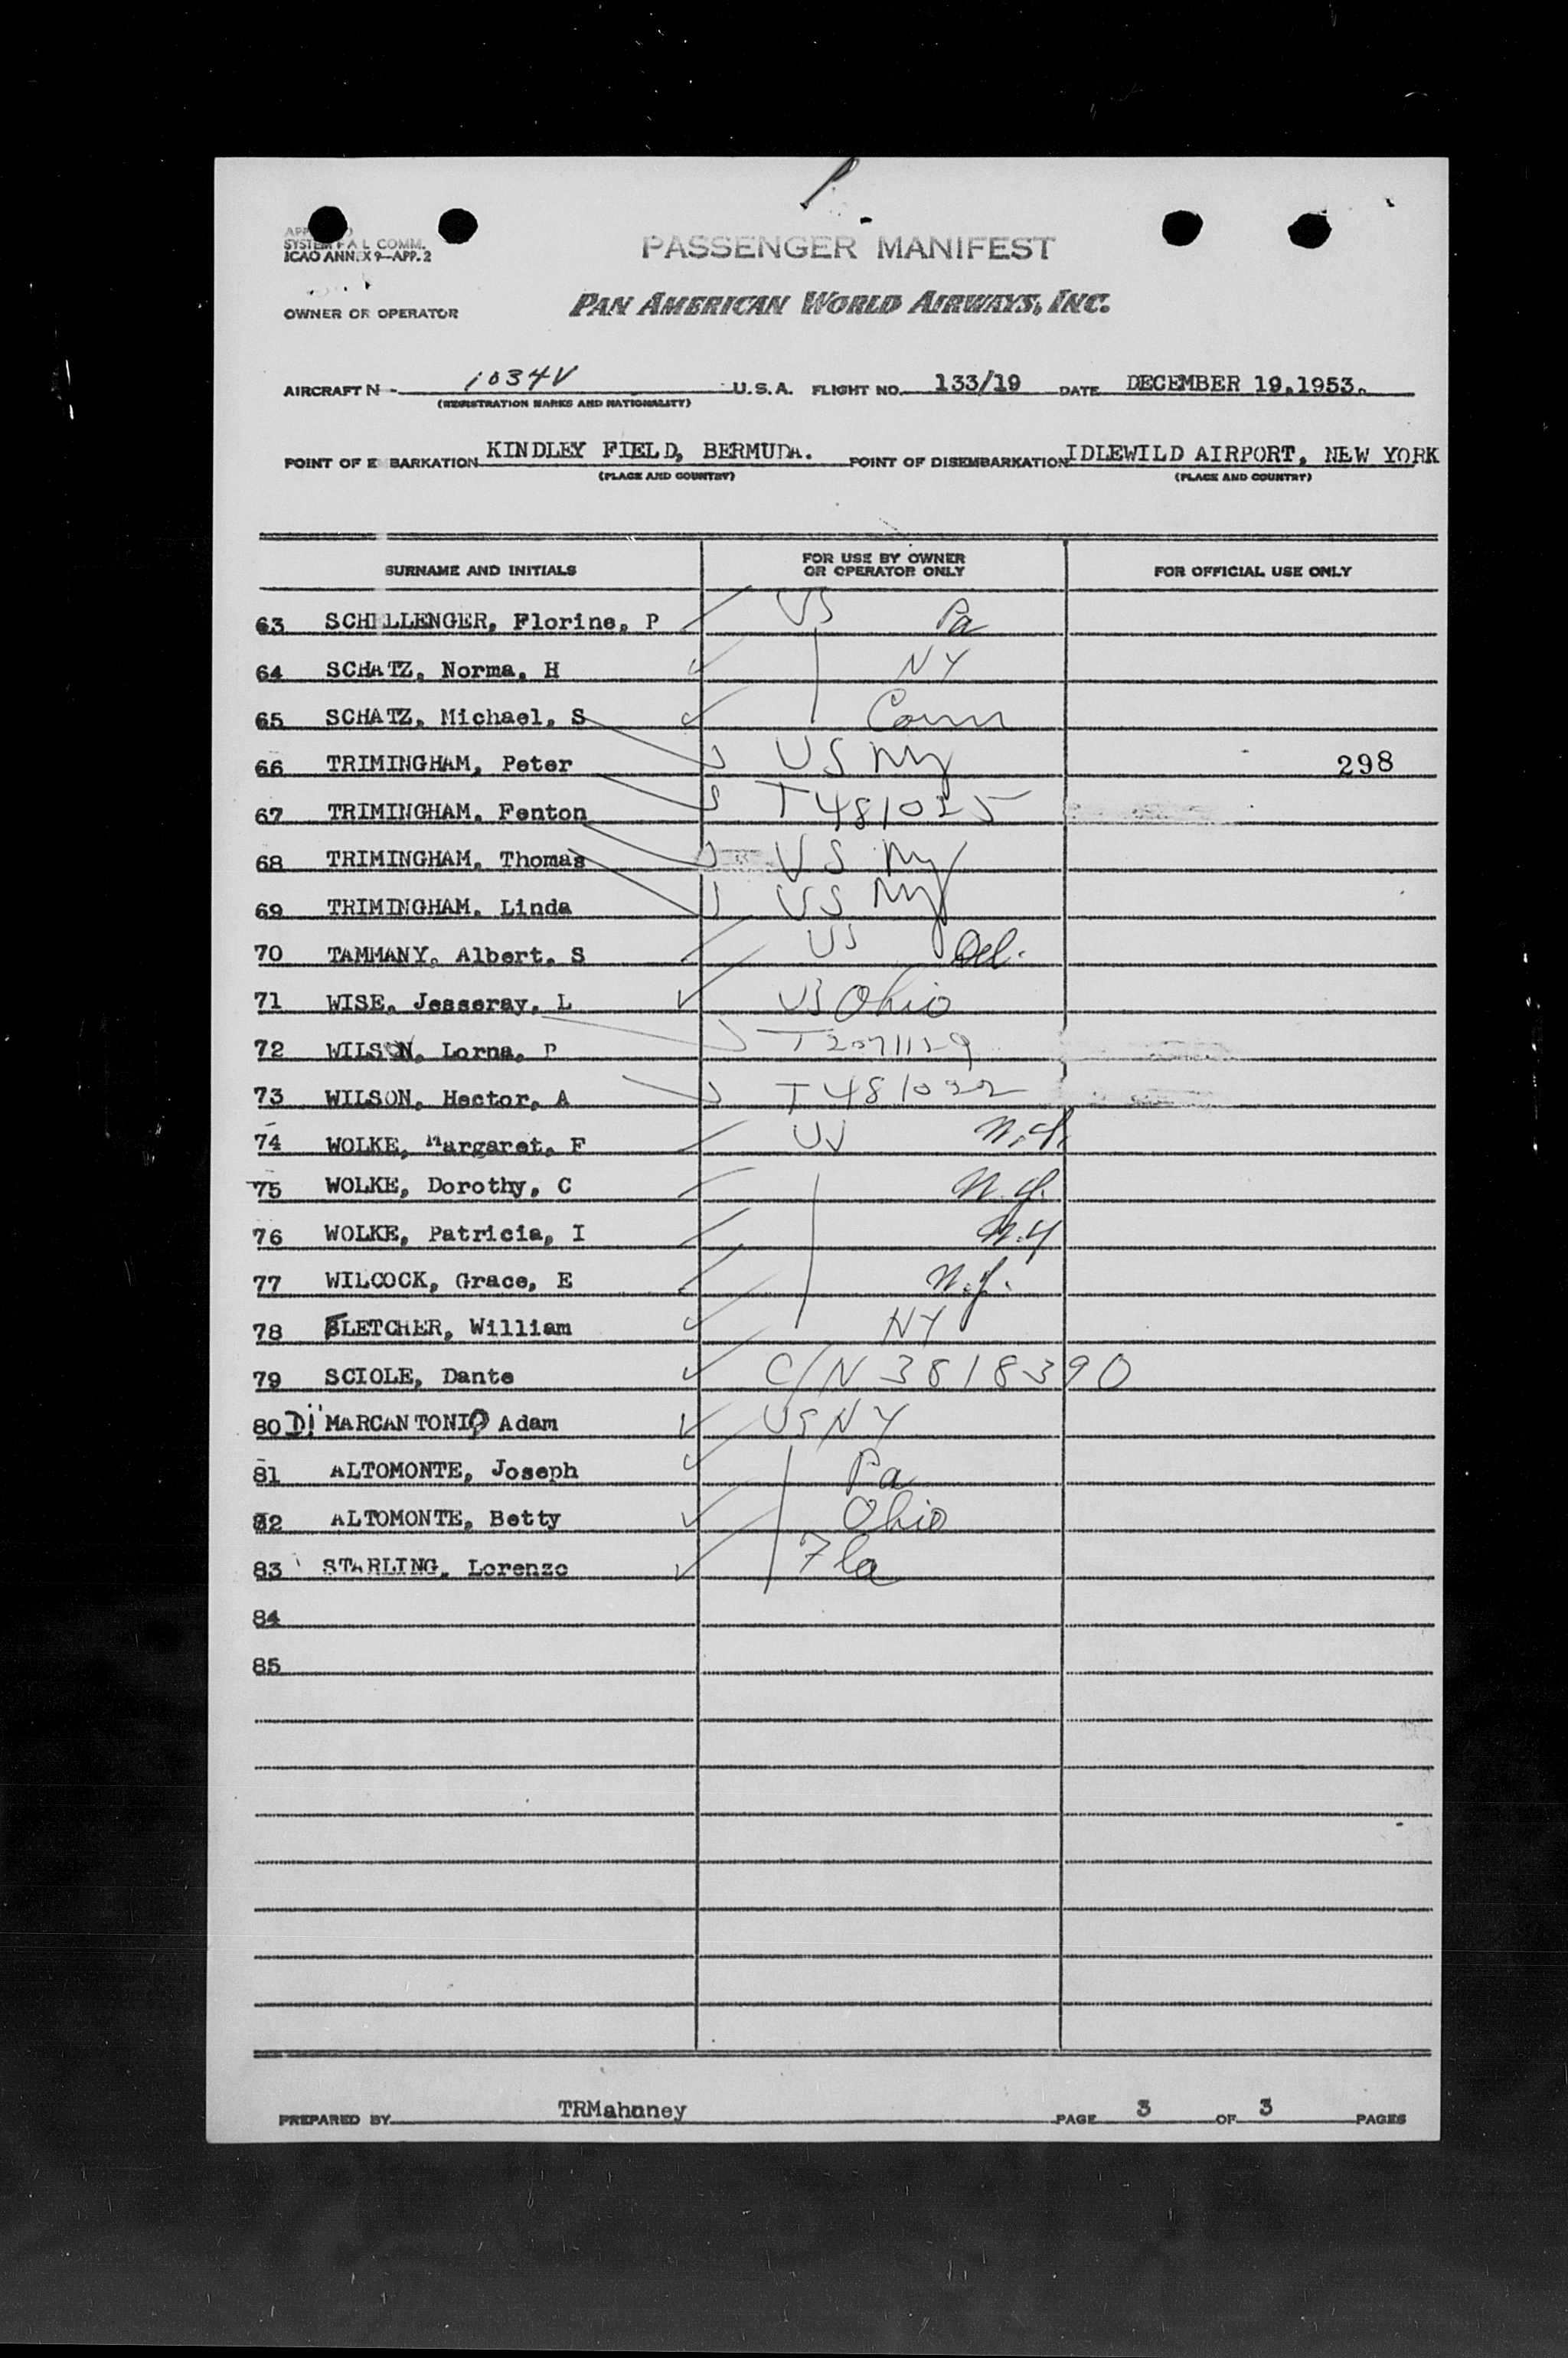 SYSTEM F A L COMM.
ICAO ANNEX 9—APP. 2
PASSENGER MANIFEST
OWNER OR OPERATOR PAN AMERICAN WORLD AIRWAYS, INC.
AIRCRAFT N - 1034V U.S.A. FLIGHT NO. 133/19 DATE DECEMBER 19,1953.
(REGISTRATION MARKS AND NATIONALITY)
POINT OF E BARKATION KINDLEY FIELD, BERMUDA. POINT OF DISEMBARKATION IDLEWILD AIRPORT, NEW YORK
(PLACE AND COUNTRY) (PLACE AND COUNTRY)
SURNAME AND INITIALS FOR USE BY OWNER OR OPERATOR ONLY FOR OFFICIAL USE ONLY
63 SCHELLENGER, Florine, P US Pa
64 SCHATZ, Norma, H NY
65 SCHATZ, Michael, S Conn
66 TRIMINGHAM, Peter US Ny 298
67 TRIMINGHAM, Fenton T481025
68 TRIMINGHAM, Thomas US Ny
69 TRIMINGHAM, Linda US Ny
70 TAMMANY, Albert, S US Del.
71 WISE, Jesseray, L US Ohio
72 WILSON, Lorna, P
73 WILSON, Hector, A T481022
74 WOLKE, Margaret, F US
75 WOLKE, Dorothy, C
76 WOLKE, Patricia, I N.Y
77 WILCOCK, Grace, E
78 FLETCHER, William NY
79 SCIOLE, Dante C/N 3818390
80 Di MARCANTONIO Adam US NY
81 ALTOMONTE, Joseph Pa
82 ALTOMONTE, Betty Ohio
83 STARLING, Lorenzo Fla
84
85
PREPARED BY TRMahoney PAGE 3 OF 3 PAGES